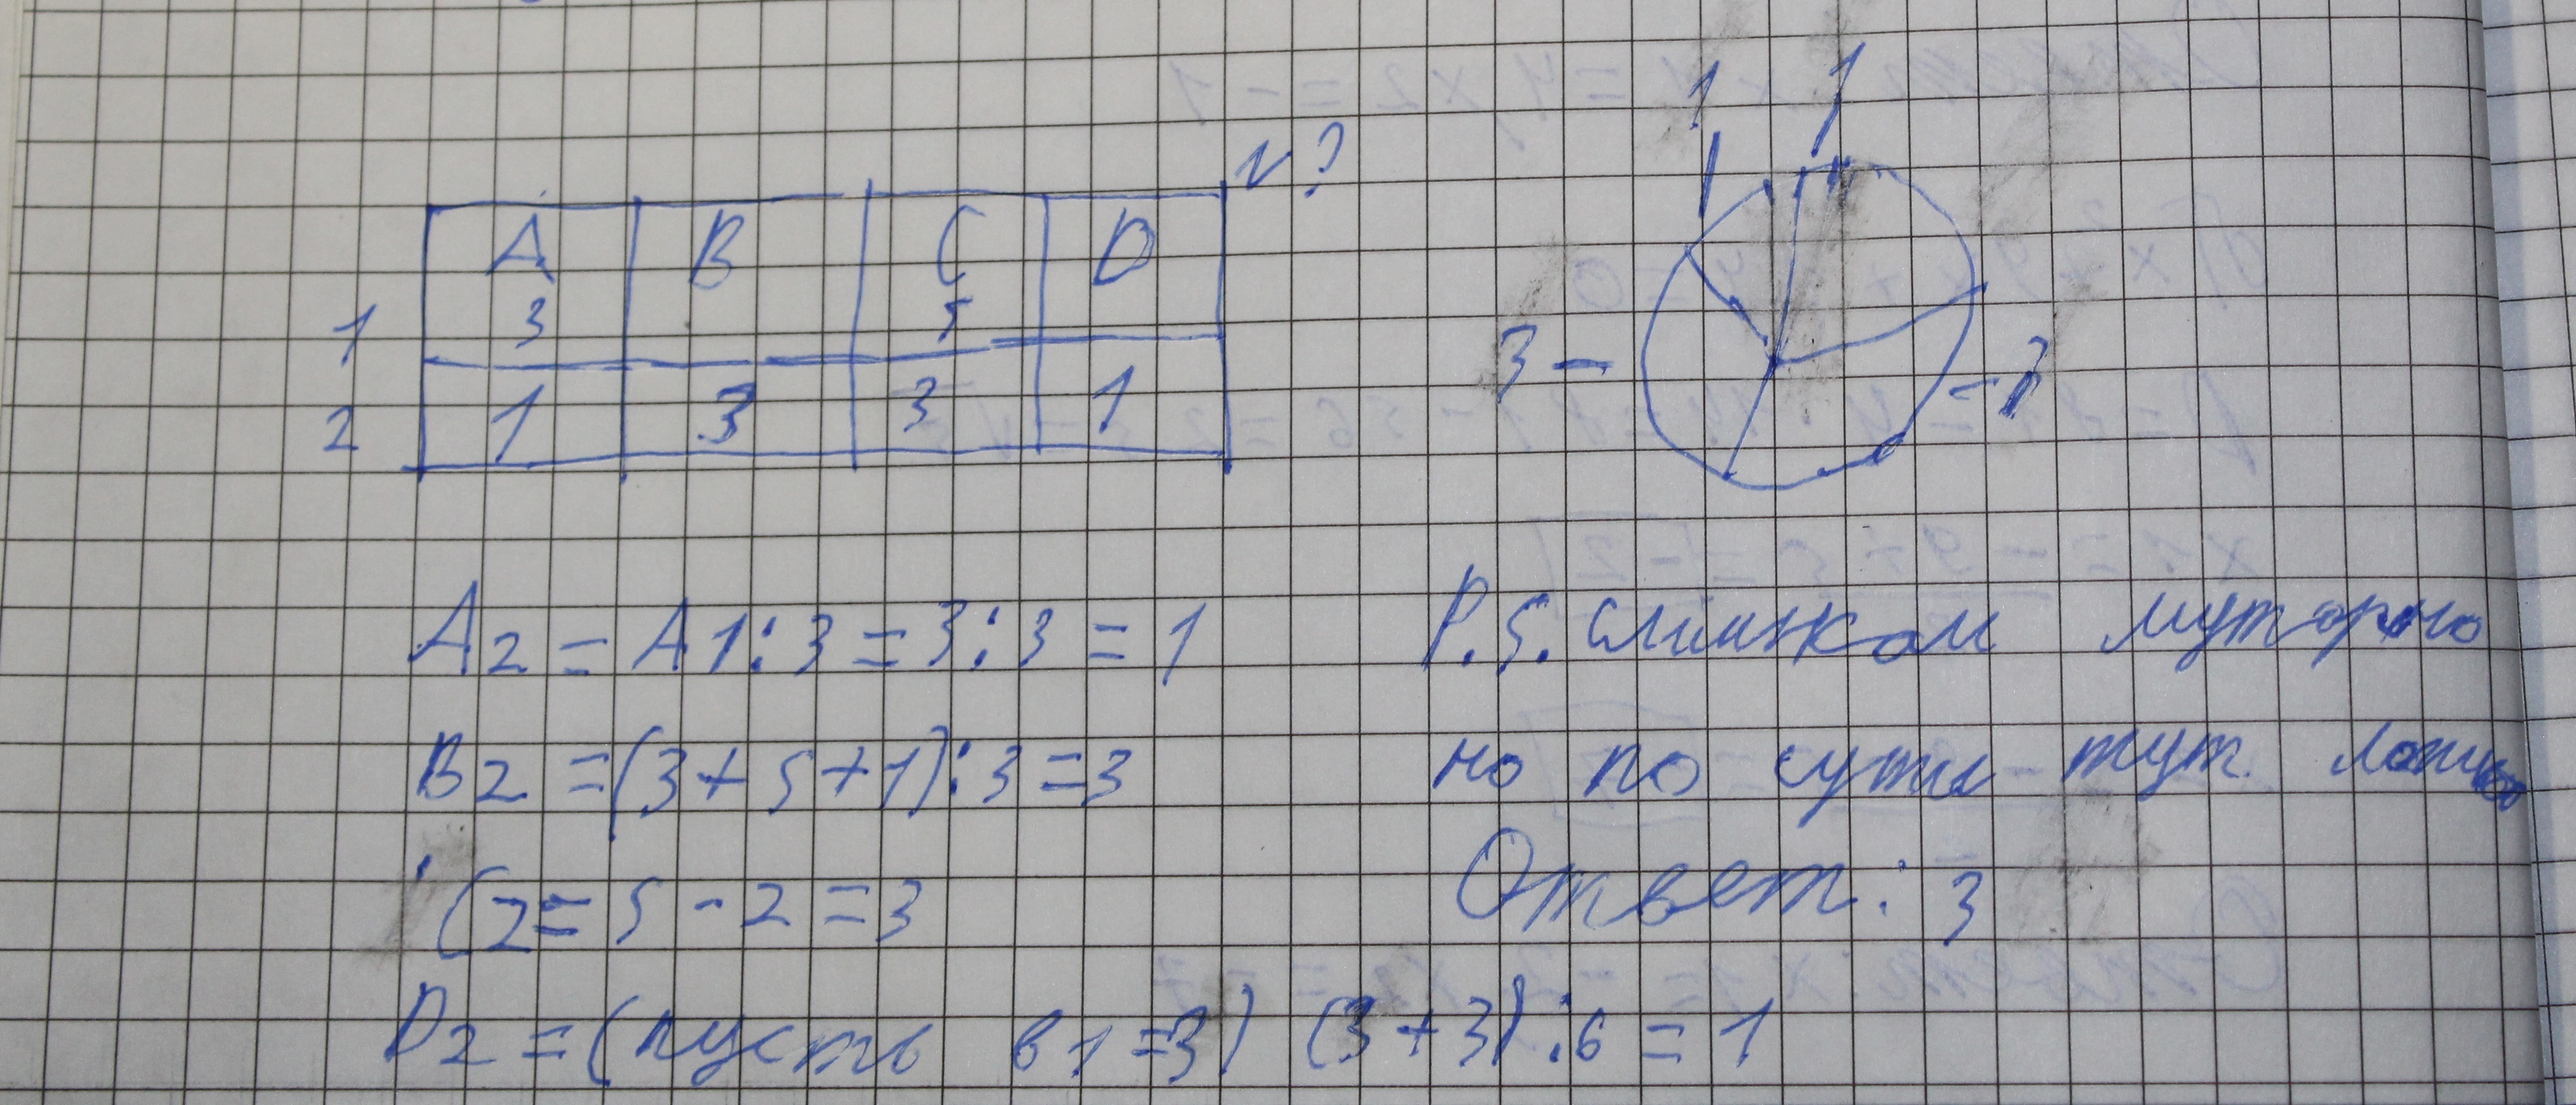 N?
A B C D
1 3 5
2 1 3 3 1
1 1
3 - - 3
A2 = A1:3 = 3:3 = 1
B2 = (3+5+1):3 = 3
C2 = 5 - 2 = 3
D2 = (пусть в1=3) (3+3):6 = 1
P.S. слишком муторно
но по сути тут
Ответ: 3